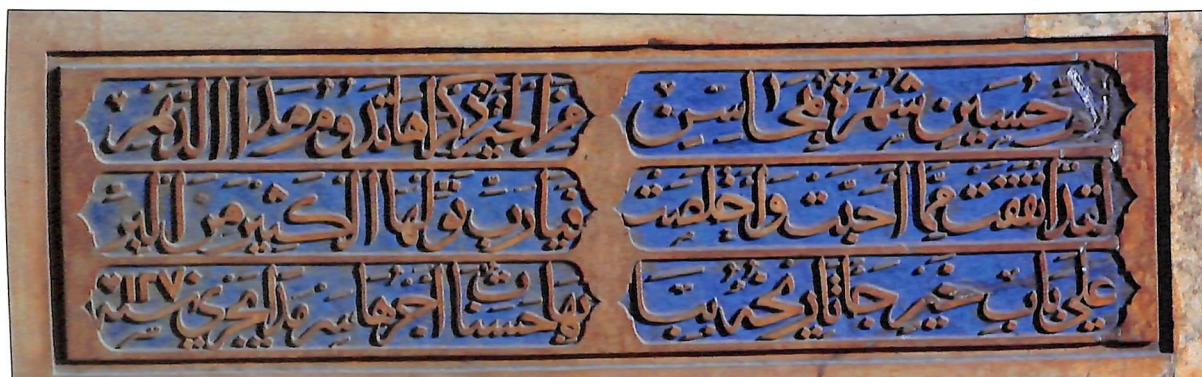 حسين شهرة بمحاسن من الخير ذكراها تدوم مدا الدهر
لقد انفقت مما احبت واخلصت فيا رب نولها الكثير من البر
على باب خير جا تاريخه بها حسنات اجرها سرمدا يجري سنة ١٢٧٠